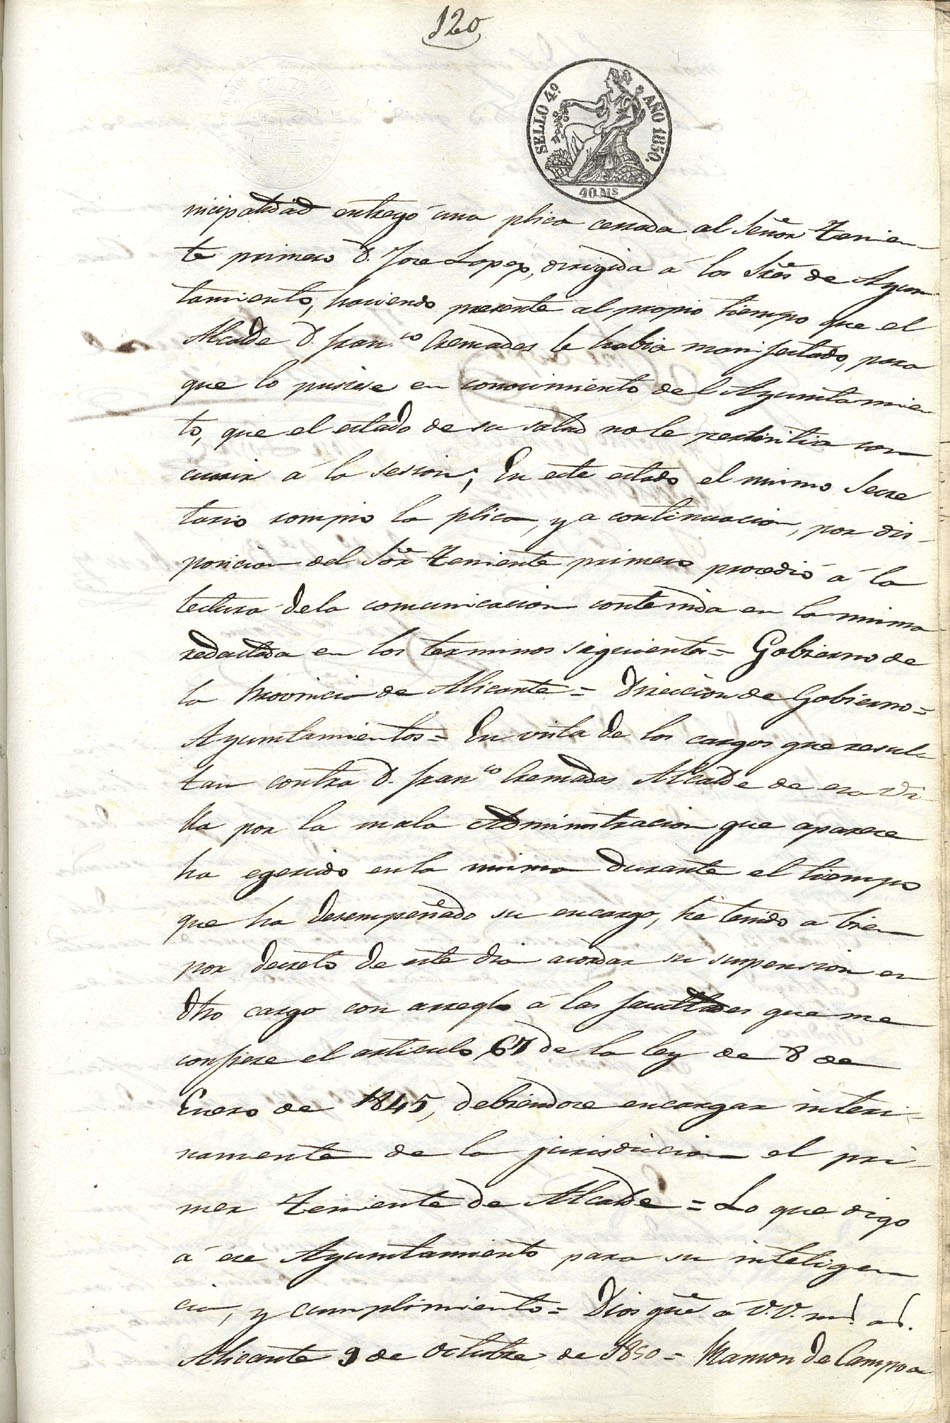 120
SELLO 4º AÑO 1850.
40 Ms
nicipalidad entregó una plica cerrada al Señor Tenien
te primero D. Jose Lopez, dirigida á los Sres de Ayun
tamiento, haciendo presente al propio tiempo que el
Alcalde D. Franco Cremades le habia manifestado, para
que lo pusiese en conocimiento del Ayuntamien
to, que el estado de su salud no le permitia con
currir á la sesion; En este estado el mismo Secre
tario rompió la plica, y a continuacion, por dis-
posicion del Sor Teniente primero procedió á la
lectura de la comunicacion contenida en la misma
redactada en los terminos siguientes = Gobierno de
la Provincia de Alicante = Direccion de Gobierno =
Ayuntamientos = En vista de los cargos que resul
tan contra D. Franco Cremades Alcalde de esa Vi
lla por la mala Administracion que aparece
ha egercido en la misma durante el tiempo
que ha desempeñado su encargo, he tenido á bien
por decreto de este dia acordar su suspension en
dho cargo con arreglo á las facultades que me
confiere el articulo 67 de la ley de 8 de
Enero de 1845, debiendose encargar interi-
namente de la jurisdiccion el pri-
mer Teniente de Alcalde = Lo que digo
á ese Ayuntamiento para su inteligen
cia, y cumplimiento = Dios gue á V.V. ms. as.
Alicante 9 de Octubre de 1850 = Ramon de Campoa